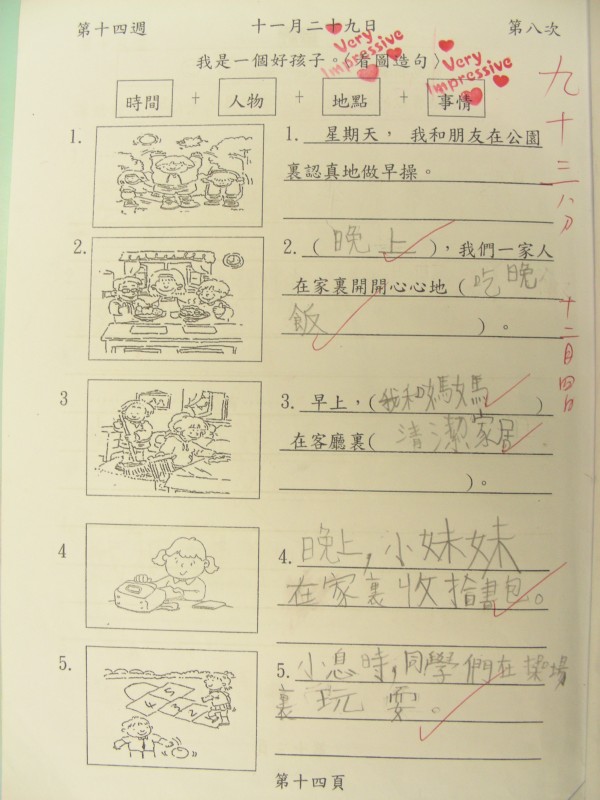 第十四週 十一月二十九日 第八次
我是一個好孩子。〈看圖造句〉
Very Impressive
Very Impressive
時間 + 人物 + 地點 + 事情
九十三分
十二月四日
1. 1. 星期天，我和朋友在公園
裏認真地做早操。
2. 2. (晚上)，我們一家人
在家裏開開心心地(吃晚
飯)。
3 3. 早上，(我和媽媽)
在客廳裏(清潔家居
)。
4 4. 晚上，小妹妹
在家裏收拾書包。
5. 5. 小息時，同學們在操場
裏玩耍。
4 5
3 2
第十四頁